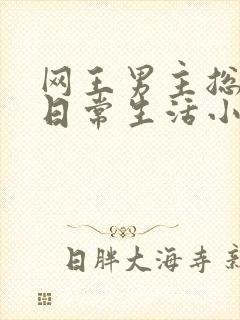 网王男主总
日常生活小
日胖大海寺新